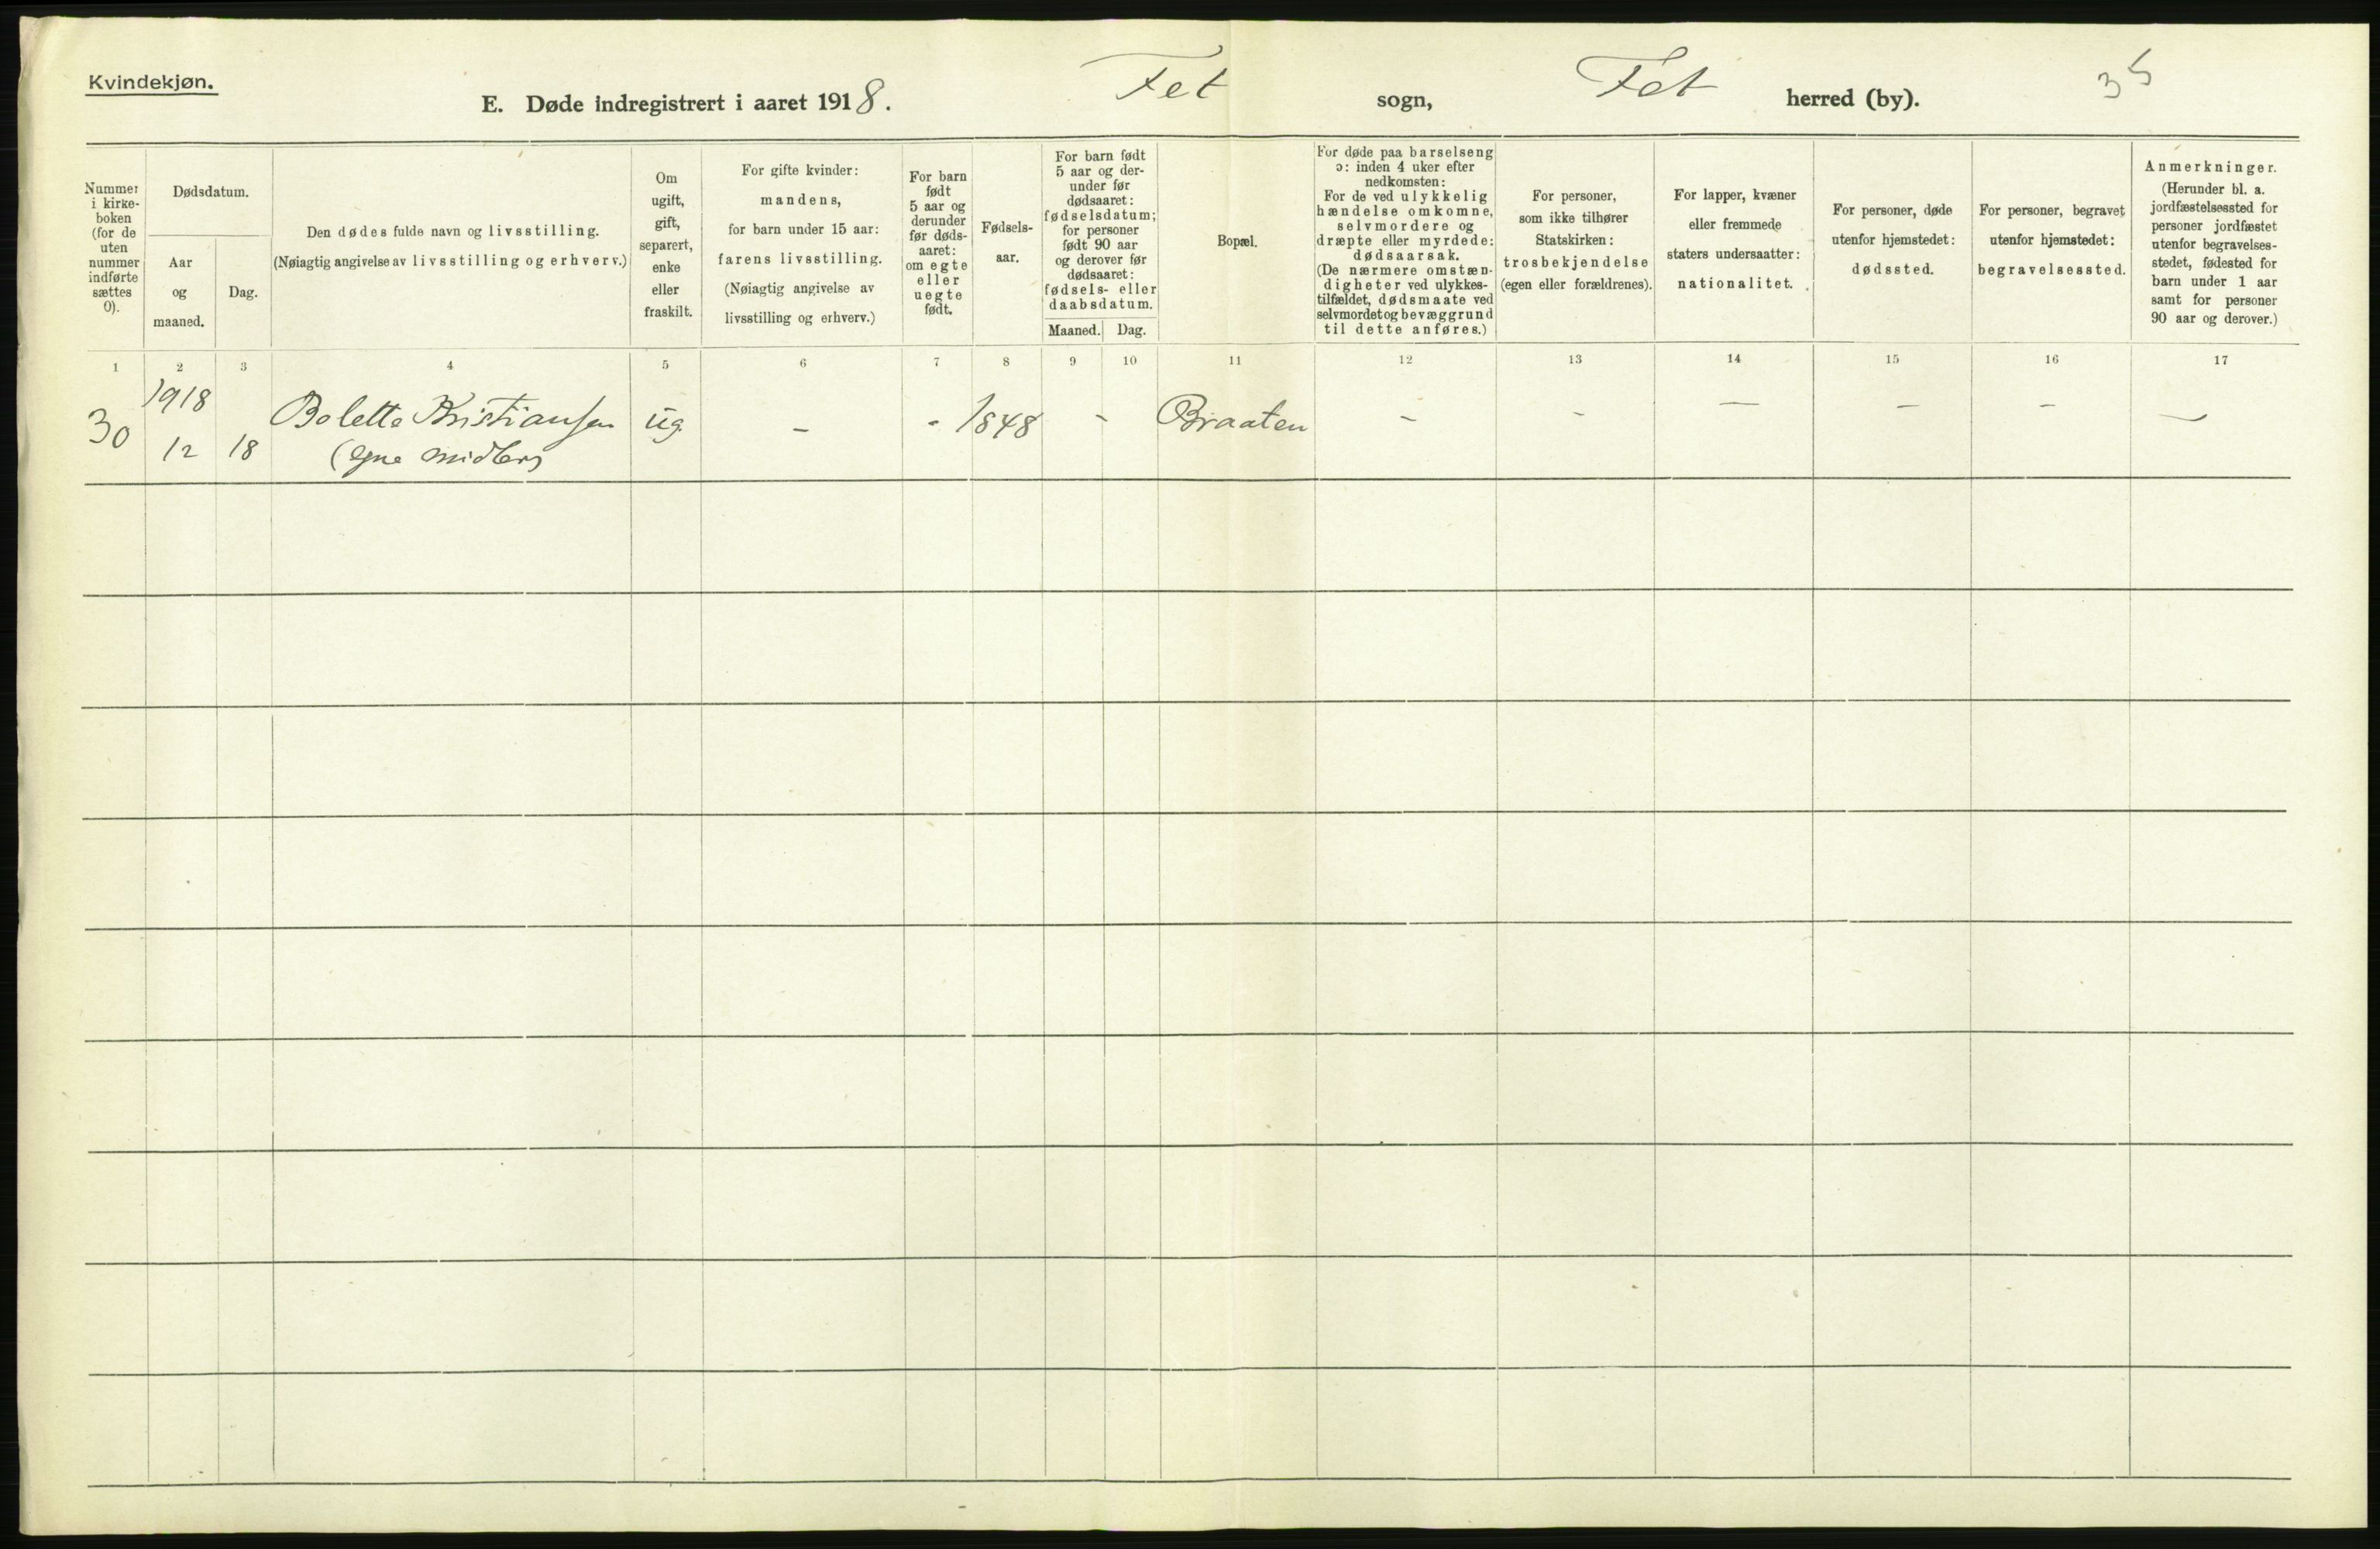 Kvindekjøn.
E. Døde indregistrert i aaret 1918. Fet sogn, Fet herred (by). 35
Nummer
i kirke-
boken
(for de
uten
nummer
indførte
sættes
0).
Dødsdatum.
Aar
og
maaned.
Dag.
Den dødes fulde navn og livsstilling.
(Nøiagtig angivelse av livsstilling og erhverv.)
Om
ugift,
gift,
separert,
enke
eller
fraskilt.
For gifte kvinder:
mandens,
for barn under 15 aar:
farens livsstilling.
(Nøiagtig angivelse av
livsstilling og erhverv.)
For barn
født
5 aar og
derunder
før døds-
aaret:
om egte
eller
uegte
født.
Fødsels-
aar.
For barn født
5 aar og der-
under før
dødsaaret:
fødselsdatum;
for personer
født 90 aar
og derover før
dødsaaret:
fødsels- eller
daabsdatum.
Maaned. Dag.
Bopæl.
For døde paa barselseng
ɔ: inden 4 uker efter
nedkomsten:
For de ved ulykkelig
hændelse omkomne,
selvmordere og
dræpte eller myrdede:
dødsaarsak.
(De nærmere omstæn-
digheter ved ulykkes-
tilfældet, dødsmaate ved
selvmordet og bevæggrund
til dette anføres.)
For personer,
som ikke tilhører
Statskirken:
trosbekjendelse
(egen eller forældrenes).
For lapper, kvæner
eller fremmede
staters undersaatter:
nationalitet.
For personer, døde
utenfor hjemstedet:
dødssted.
For personer, begravet
utenfor hjemstedet:
begravelsessted.
Anmerkninger.
(Herunder bl. a.
jordfæstelsessted for
personer jordfæstet
utenfor begravelses-
stedet, fødested for
barn under 1 aar
samt for personer
90 aar og derover.)
1 2 3 4 5 6 7 8 9 10 11 12 13 14 15 16 17
1918
30 Bolette Kristiansen ug. - - 1848 - Braaten - - - - - -
12 18 (egne midler)